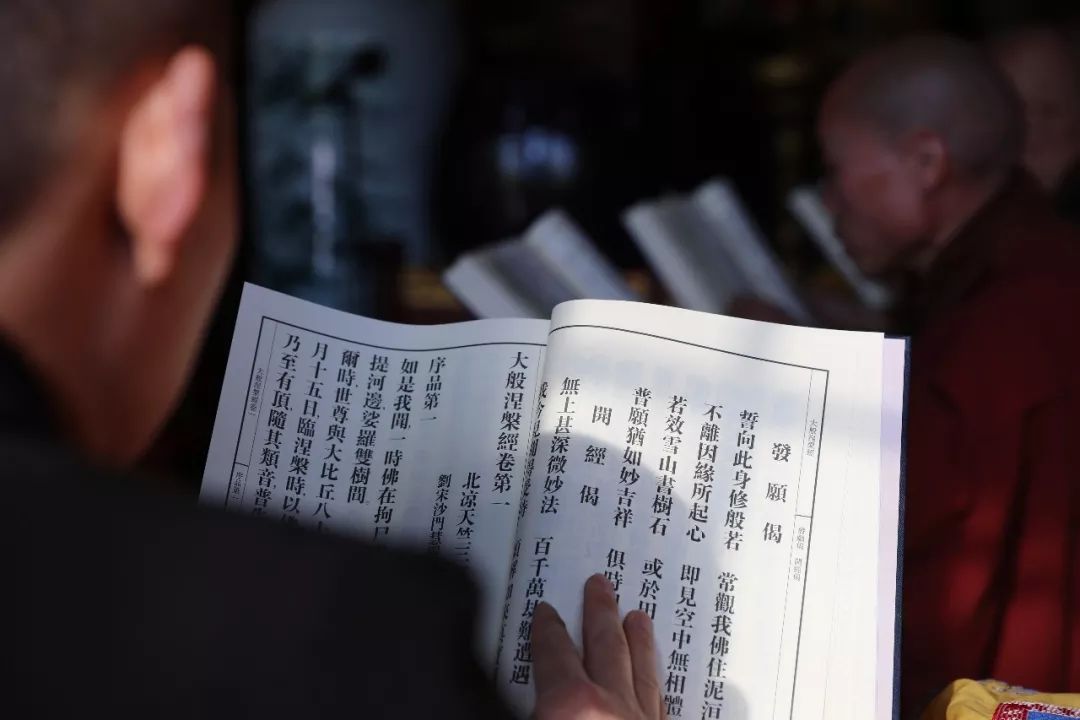 發願偈
誓向此身修般若 常觀我佛住泥洹
不離因緣所起心 即見空中無相體
若效雪山書樹石 或於田
普願猶如妙吉祥 俱時
開經偈
無上甚深微妙法 百千萬劫難遭遇
我今見聞
大般涅槃經卷第一
北涼天竺三
劉宋沙門慧
序品第一
如是我聞一時佛在拘尸
提河邊娑羅雙樹間
爾時世尊與大比丘八十
月十五日臨涅槃時以
乃至有頂隨其類音普
大般涅槃經卷一
序品第一
大般涅槃經
發願偈 開經偈